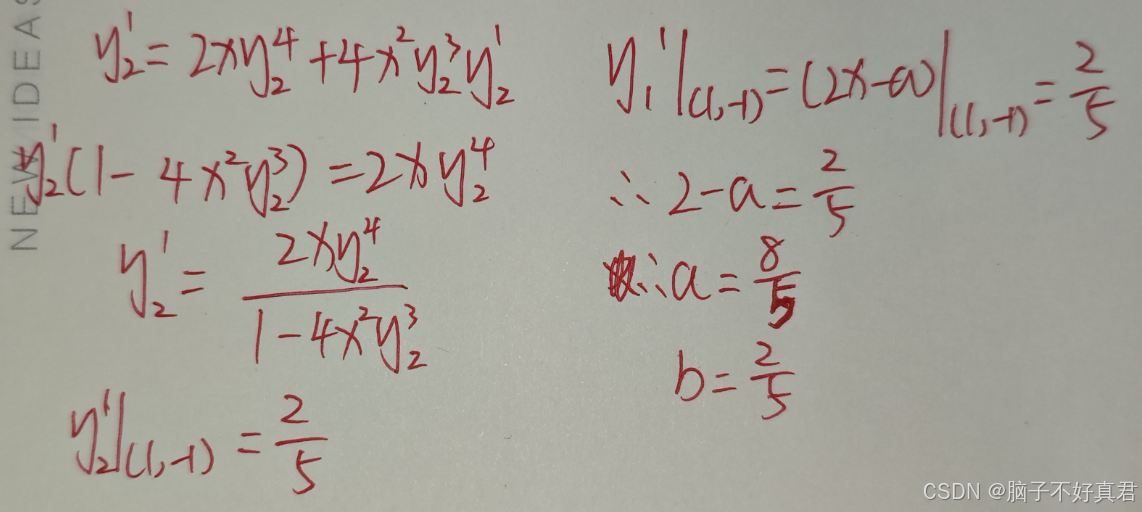 NEW IDEAS
y₂' = 2xy₂⁴ + 4x²y₂³y₂'
y₂'(1 - 4x²y₂³) = 2xy₂⁴
y₂' = \frac{2xy₂⁴}{1 - 4x²y₂³}
y₂'|(1,-1) = \frac{2}{5}
y₁'|(1,-1) = (2x-a)|(1,-1) = \frac{2}{5}
∴ 2-a = \frac{2}{5}
∴ a = \frac{8}{5}
b = \frac{2}{5}
CSDN @脑子不好真君